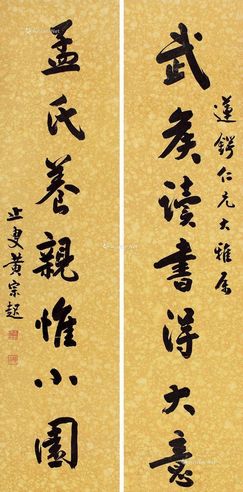 蓮鍔仁兄大雅屬
武矦讀書得大意
孟氏養親惟小園
止叟黃宗起